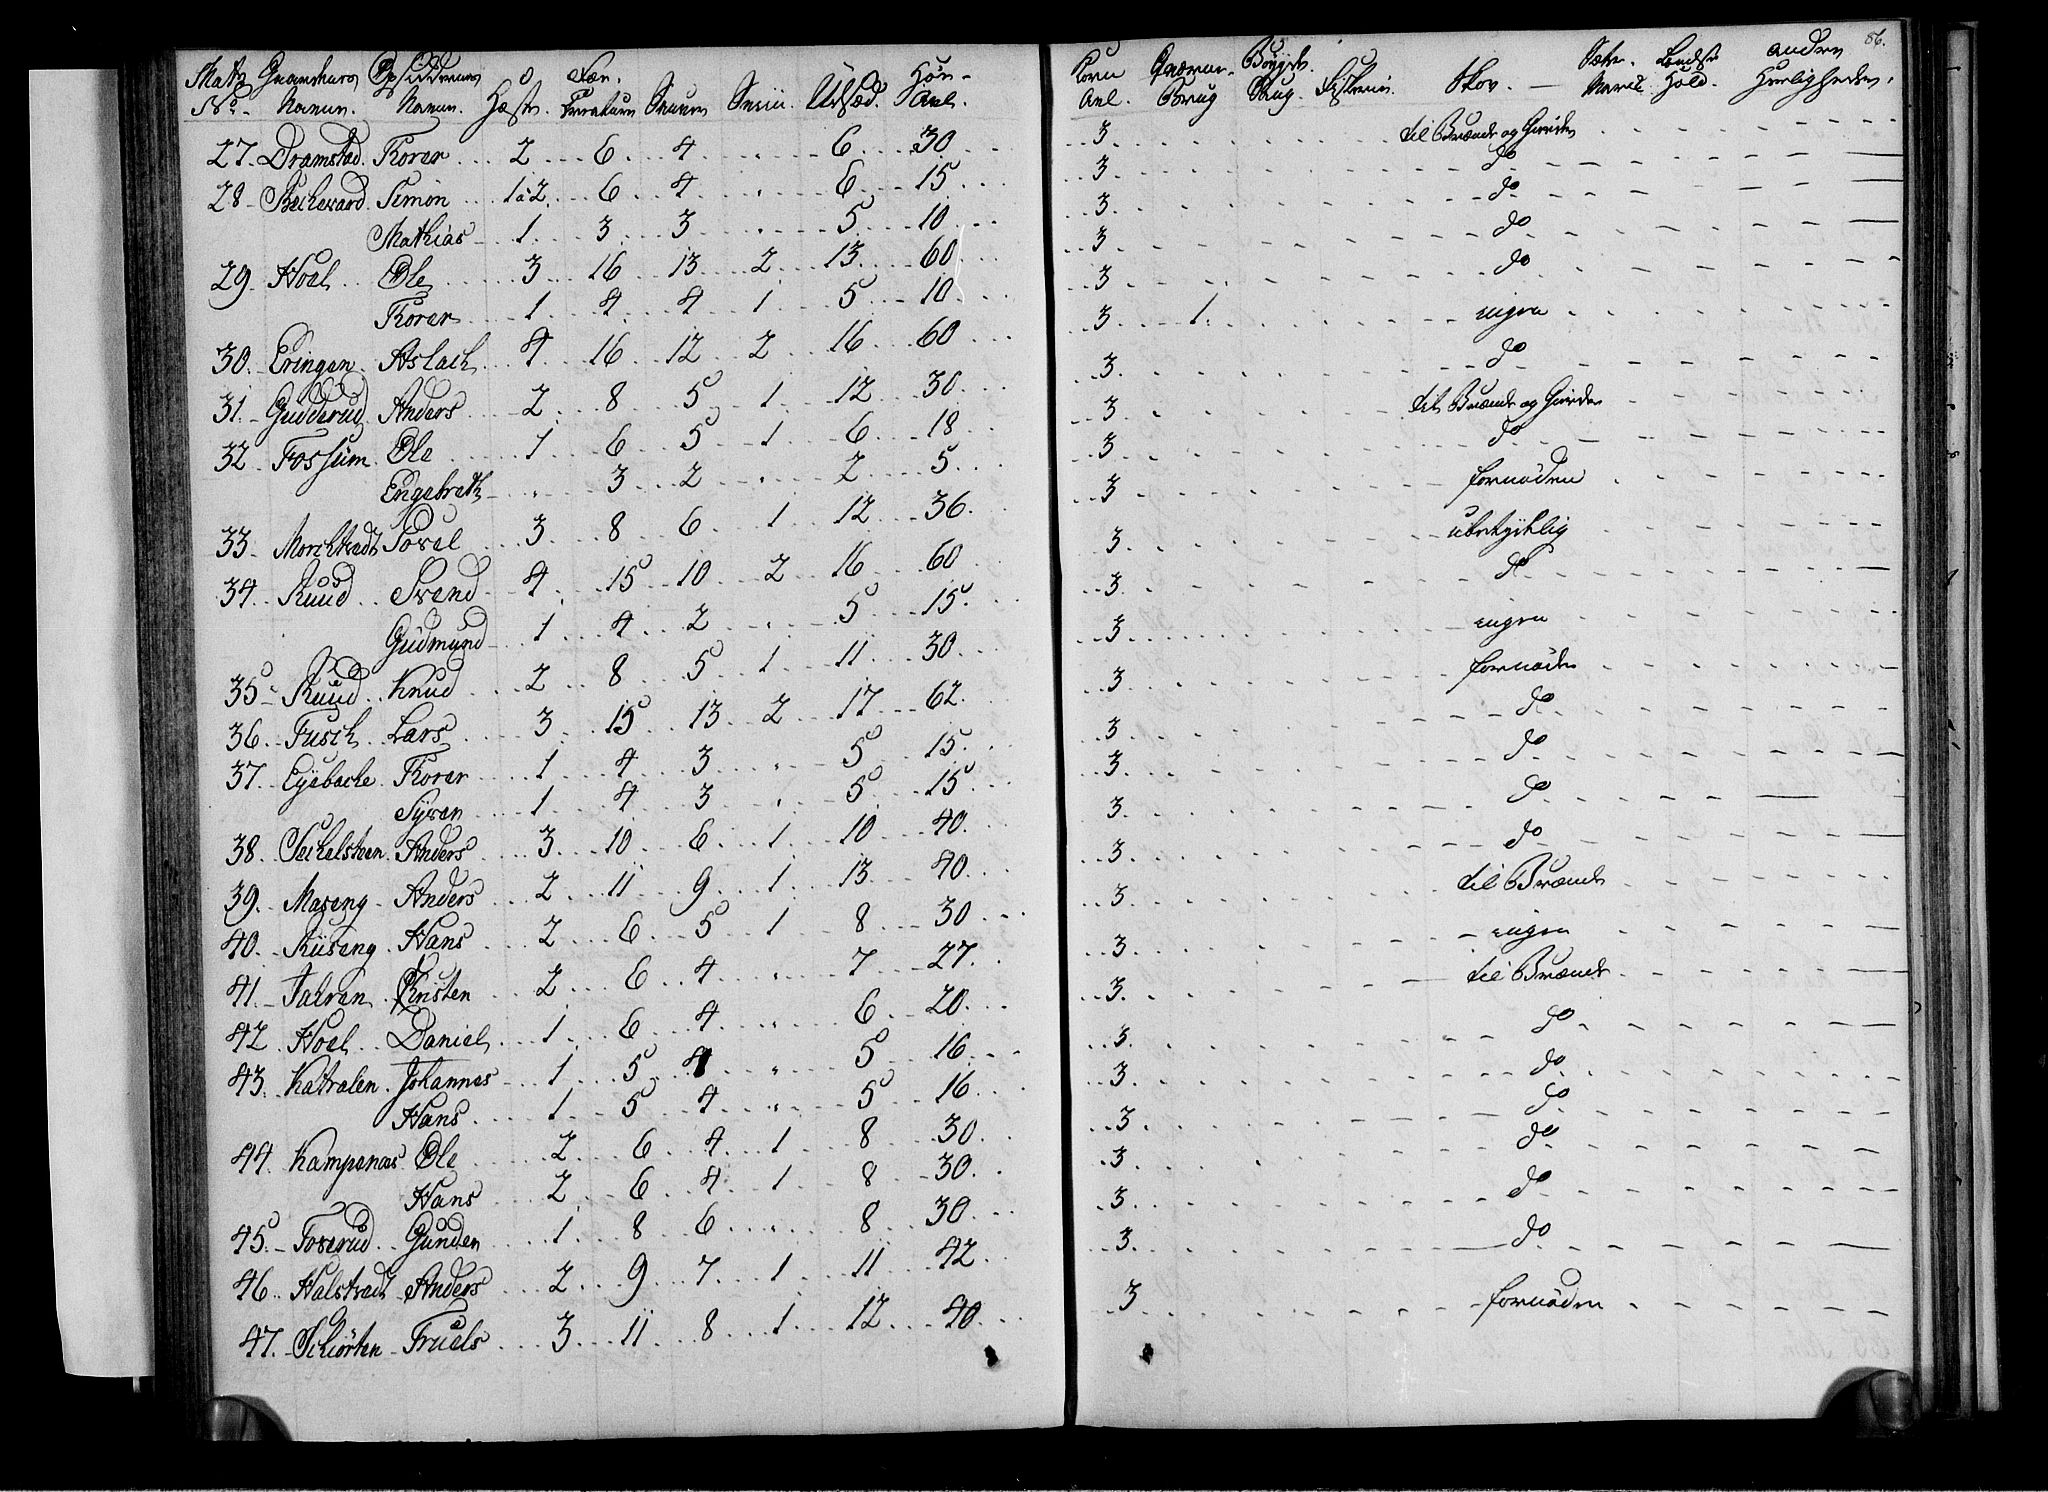 86.
Matr No. Gaardens Namen. Opsiddernes Namen. Heste. Fæe. Creature Smaae Sviin. Udsæd. Høe-Avl. Korn Avl. Qværne-Brug Bøigde Brug. Fiskerie. Skov. Sæter. Havn Hold. Andre Herligheder.
27. Dramstad. Thorer 2 6 4 6 30 3 til Brænde og Gierder
28 Beckevard. Simon 1 à 2 6 4 6 15 3 do
Mathias 1 3 3 5 10 3 do
29. Hoel Ole 3 16 13 2 13 60 3 do
Thorer 1 4 4 1 5 10 3 do
30. Eringen Aslach 4 16 12 2 16 60 3 1 ingen
31. Gudderud Anders 2 8 5 1 12 30 3 do
32 Fossum Ole 1 6 5 1 6 18 3 til Brænde og Gierder
Engebreth 3 2 2 5 3 do
33. Morchtredt Povel 3 8 6 1 12 36 3 fornøden
34. Ruud Svend 4 15 10 2 16 60 3 ubetydelig
Gudmund 1 4 2 5 15 3 do
35 Ruud Knud 2 8 5 1 11 30 3 ingen
36. Fusch Lars 3 15 13 2 17 62 3 fornøden
37. Eyebacke Thorer 1 4 3 5 15 3 do
Syver 1 4 3 5 15 3 do
38. Seckelsteen Anders 3 10 6 1 10 40 3 do
39. Maseng Anders 2 11 9 1 13 40 3 do
40. Riiseng Hans 2 6 5 1 8 30 3 til Brænde
41. Talren Christen 2 6 4 7 27 3 ingen
42. Hoel Daniel 1 6 4 6 20 3 til Brænde
43. Katralen Johannes 1 5 4 5 16 3 do
Hans 1 5 4 5 16 3 do
44. Kampenæs Ole 2 6 4 1 8 30 3 do
Hans 2 6 4 1 8 30 3 do
45. Toverud Gunder 1 8 6 8 30 3 do
46. Halstredt Anders 2 9 7 1 11 42 3 do
47. Schiörten Truels 3 11 8 1 12 40 3 fornøden